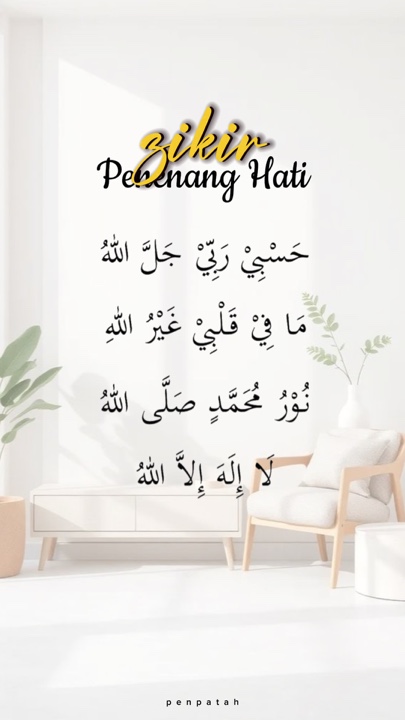 zikir
Penenang Hati
حَسْبِيْ رَبِّيْ جَلَّ اللهُ
مَا فِيْ قَلْبِيْ غَيْرُ اللهِ
نُوْرُ مُحَمَّدٍ صَلَّى اللهُ
لَا إِلَهَ إِلاَّ اللهُ
penpatah